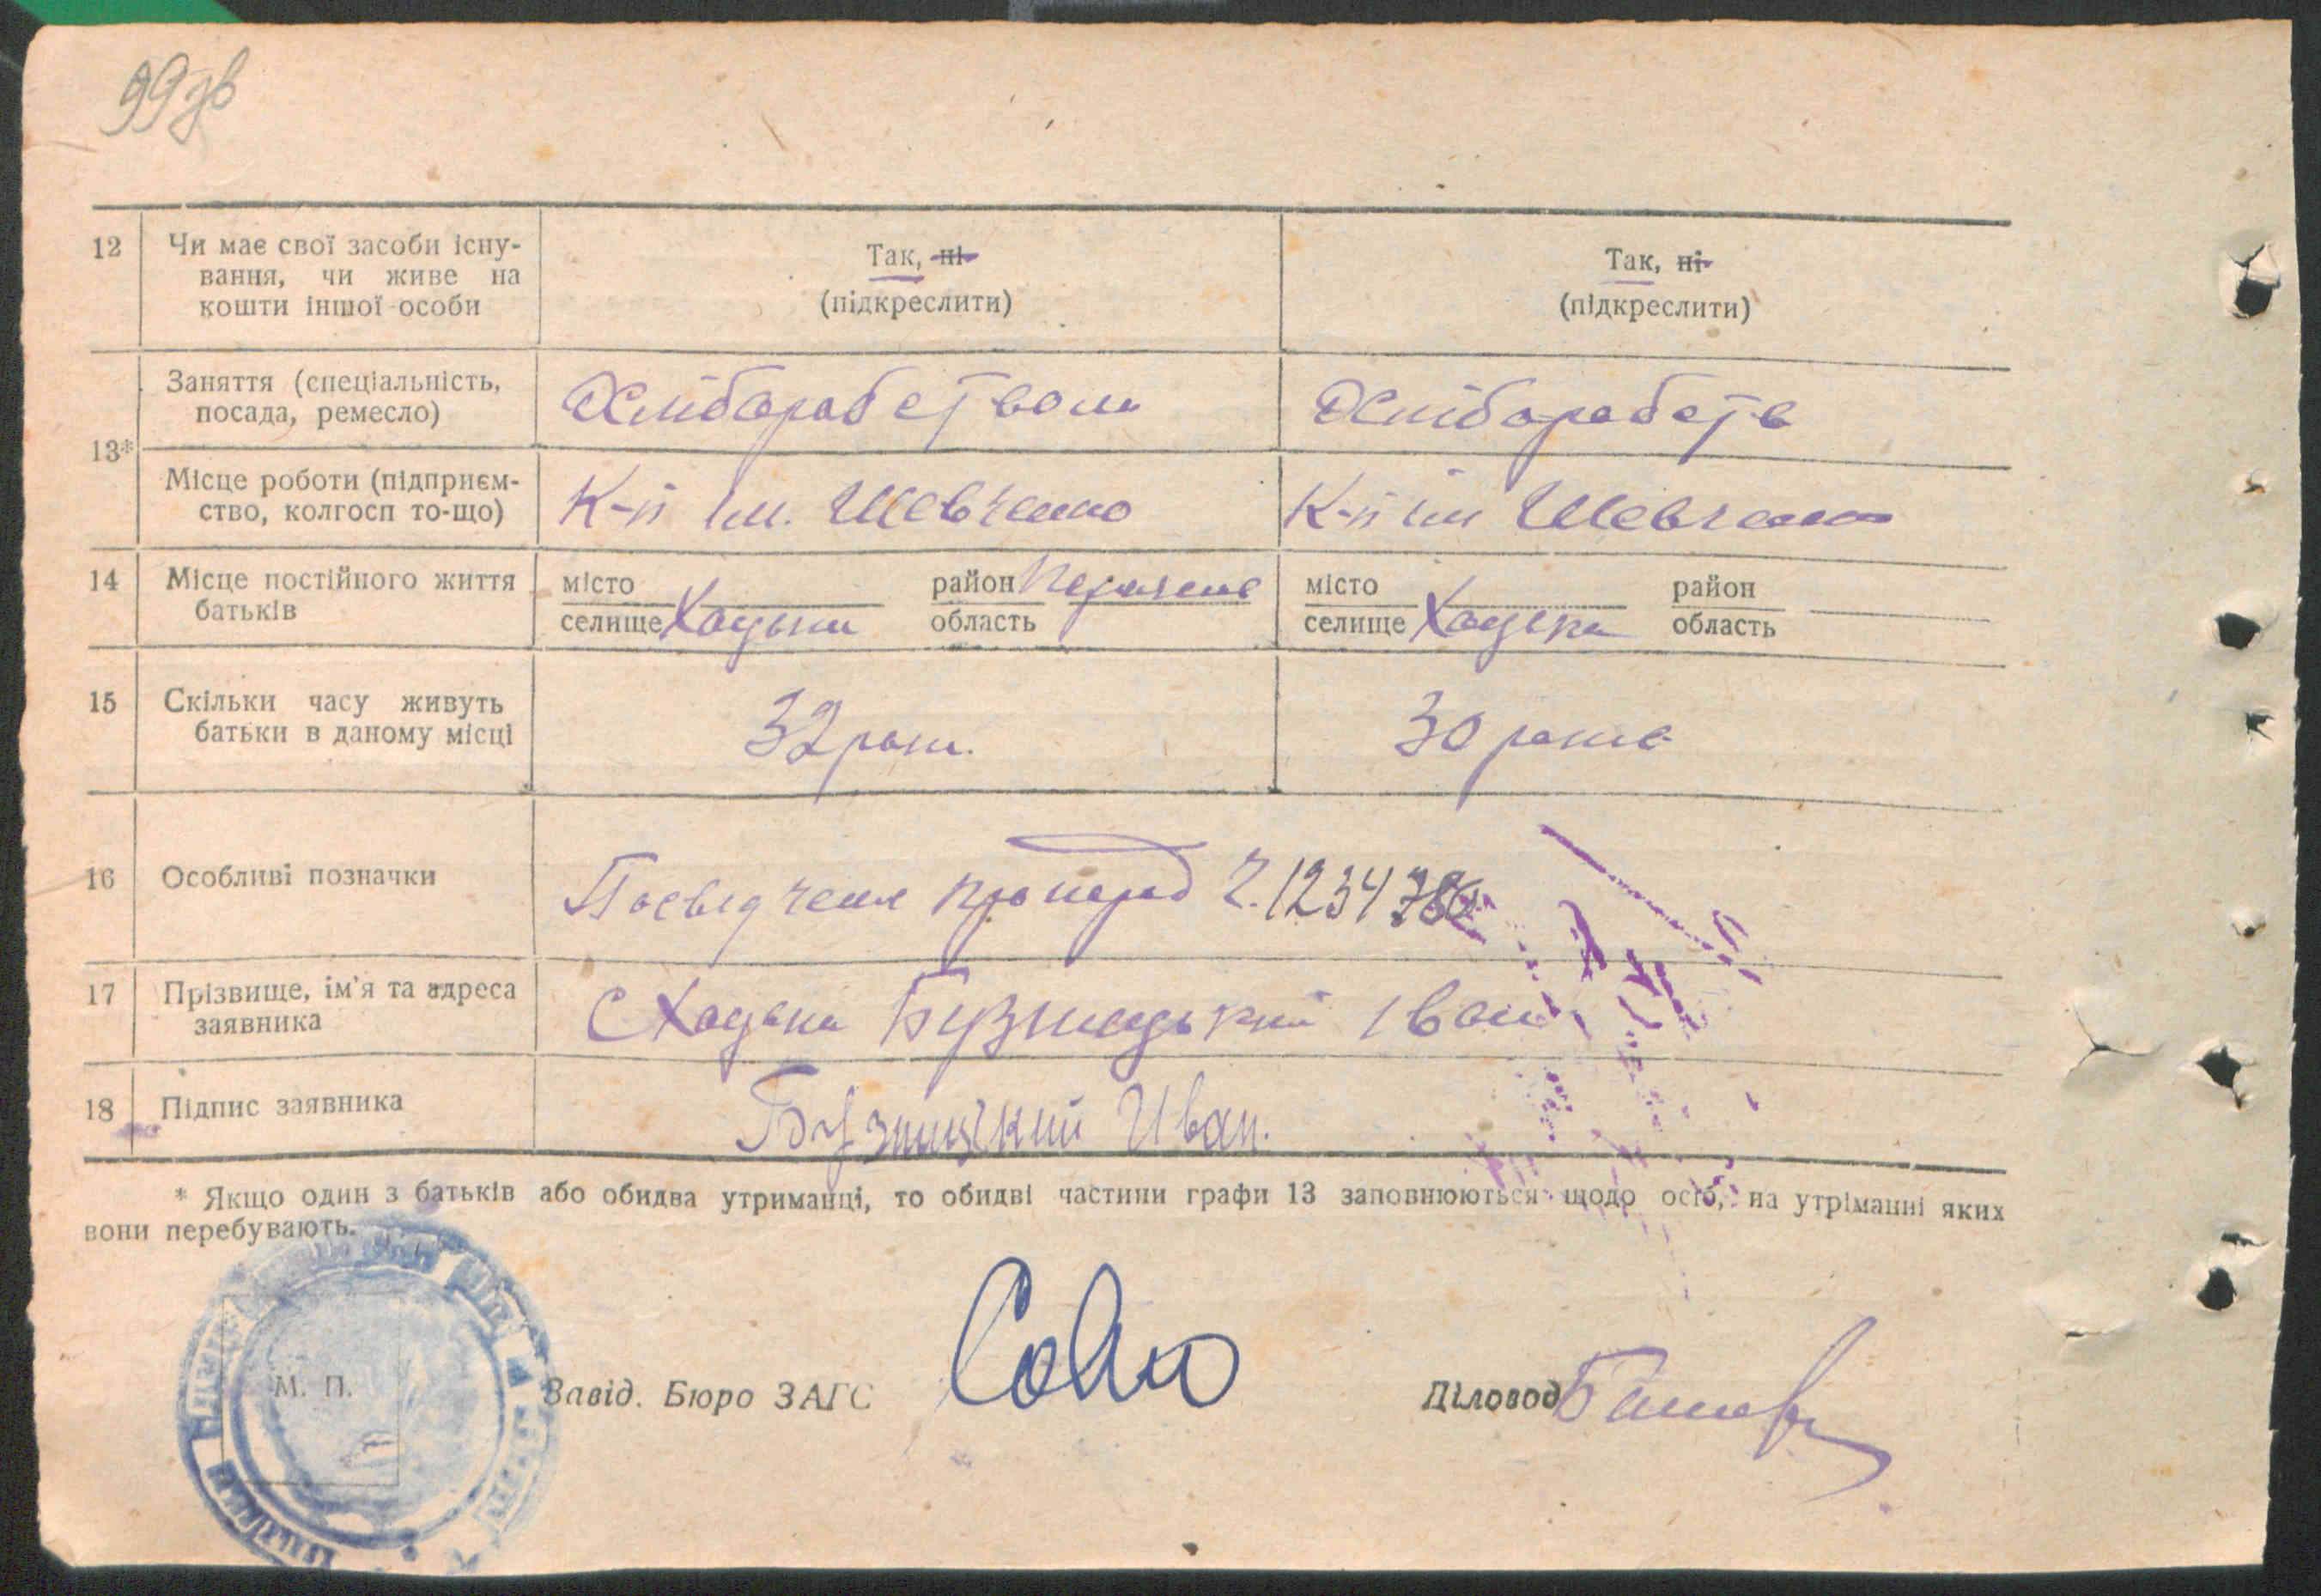 99зв
12 Чи має свої засоби існу-
вання, чи живе на
кошти іншої особи
Так, ні
(підкреслити)
Так, ні
(підкреслити)
13*
Заняття (спеціальність,
посада, ремесло)
Хліборобством
Хліборобств
Місце роботи (підприєм-
ство, колгосп то-що)
К-п ім. Шевченко
К-п ім Шевченко
14 Місце постійного життя
батьків
місто
селище Хацьки
район
область
місто
селище Хацьки
район
область
15 Скільки часу живуть
батьки в даному місці
32 роки.
30 років
16 Особливі позначки
Посвідченя про народ 2. 1234
17 Прізвище, ім'я та адреса
заявника
С Хацьки Бузницький Іван
18 Підпис заявника
Бузницький Иван.
* Якщо один з батьків або обидва утриманці, то обидві частини графи 13 заповнюються щодо осіб, на утріманні яких
вони перебувають.
М. П.
Завід. Бюро ЗАГС
Діловод